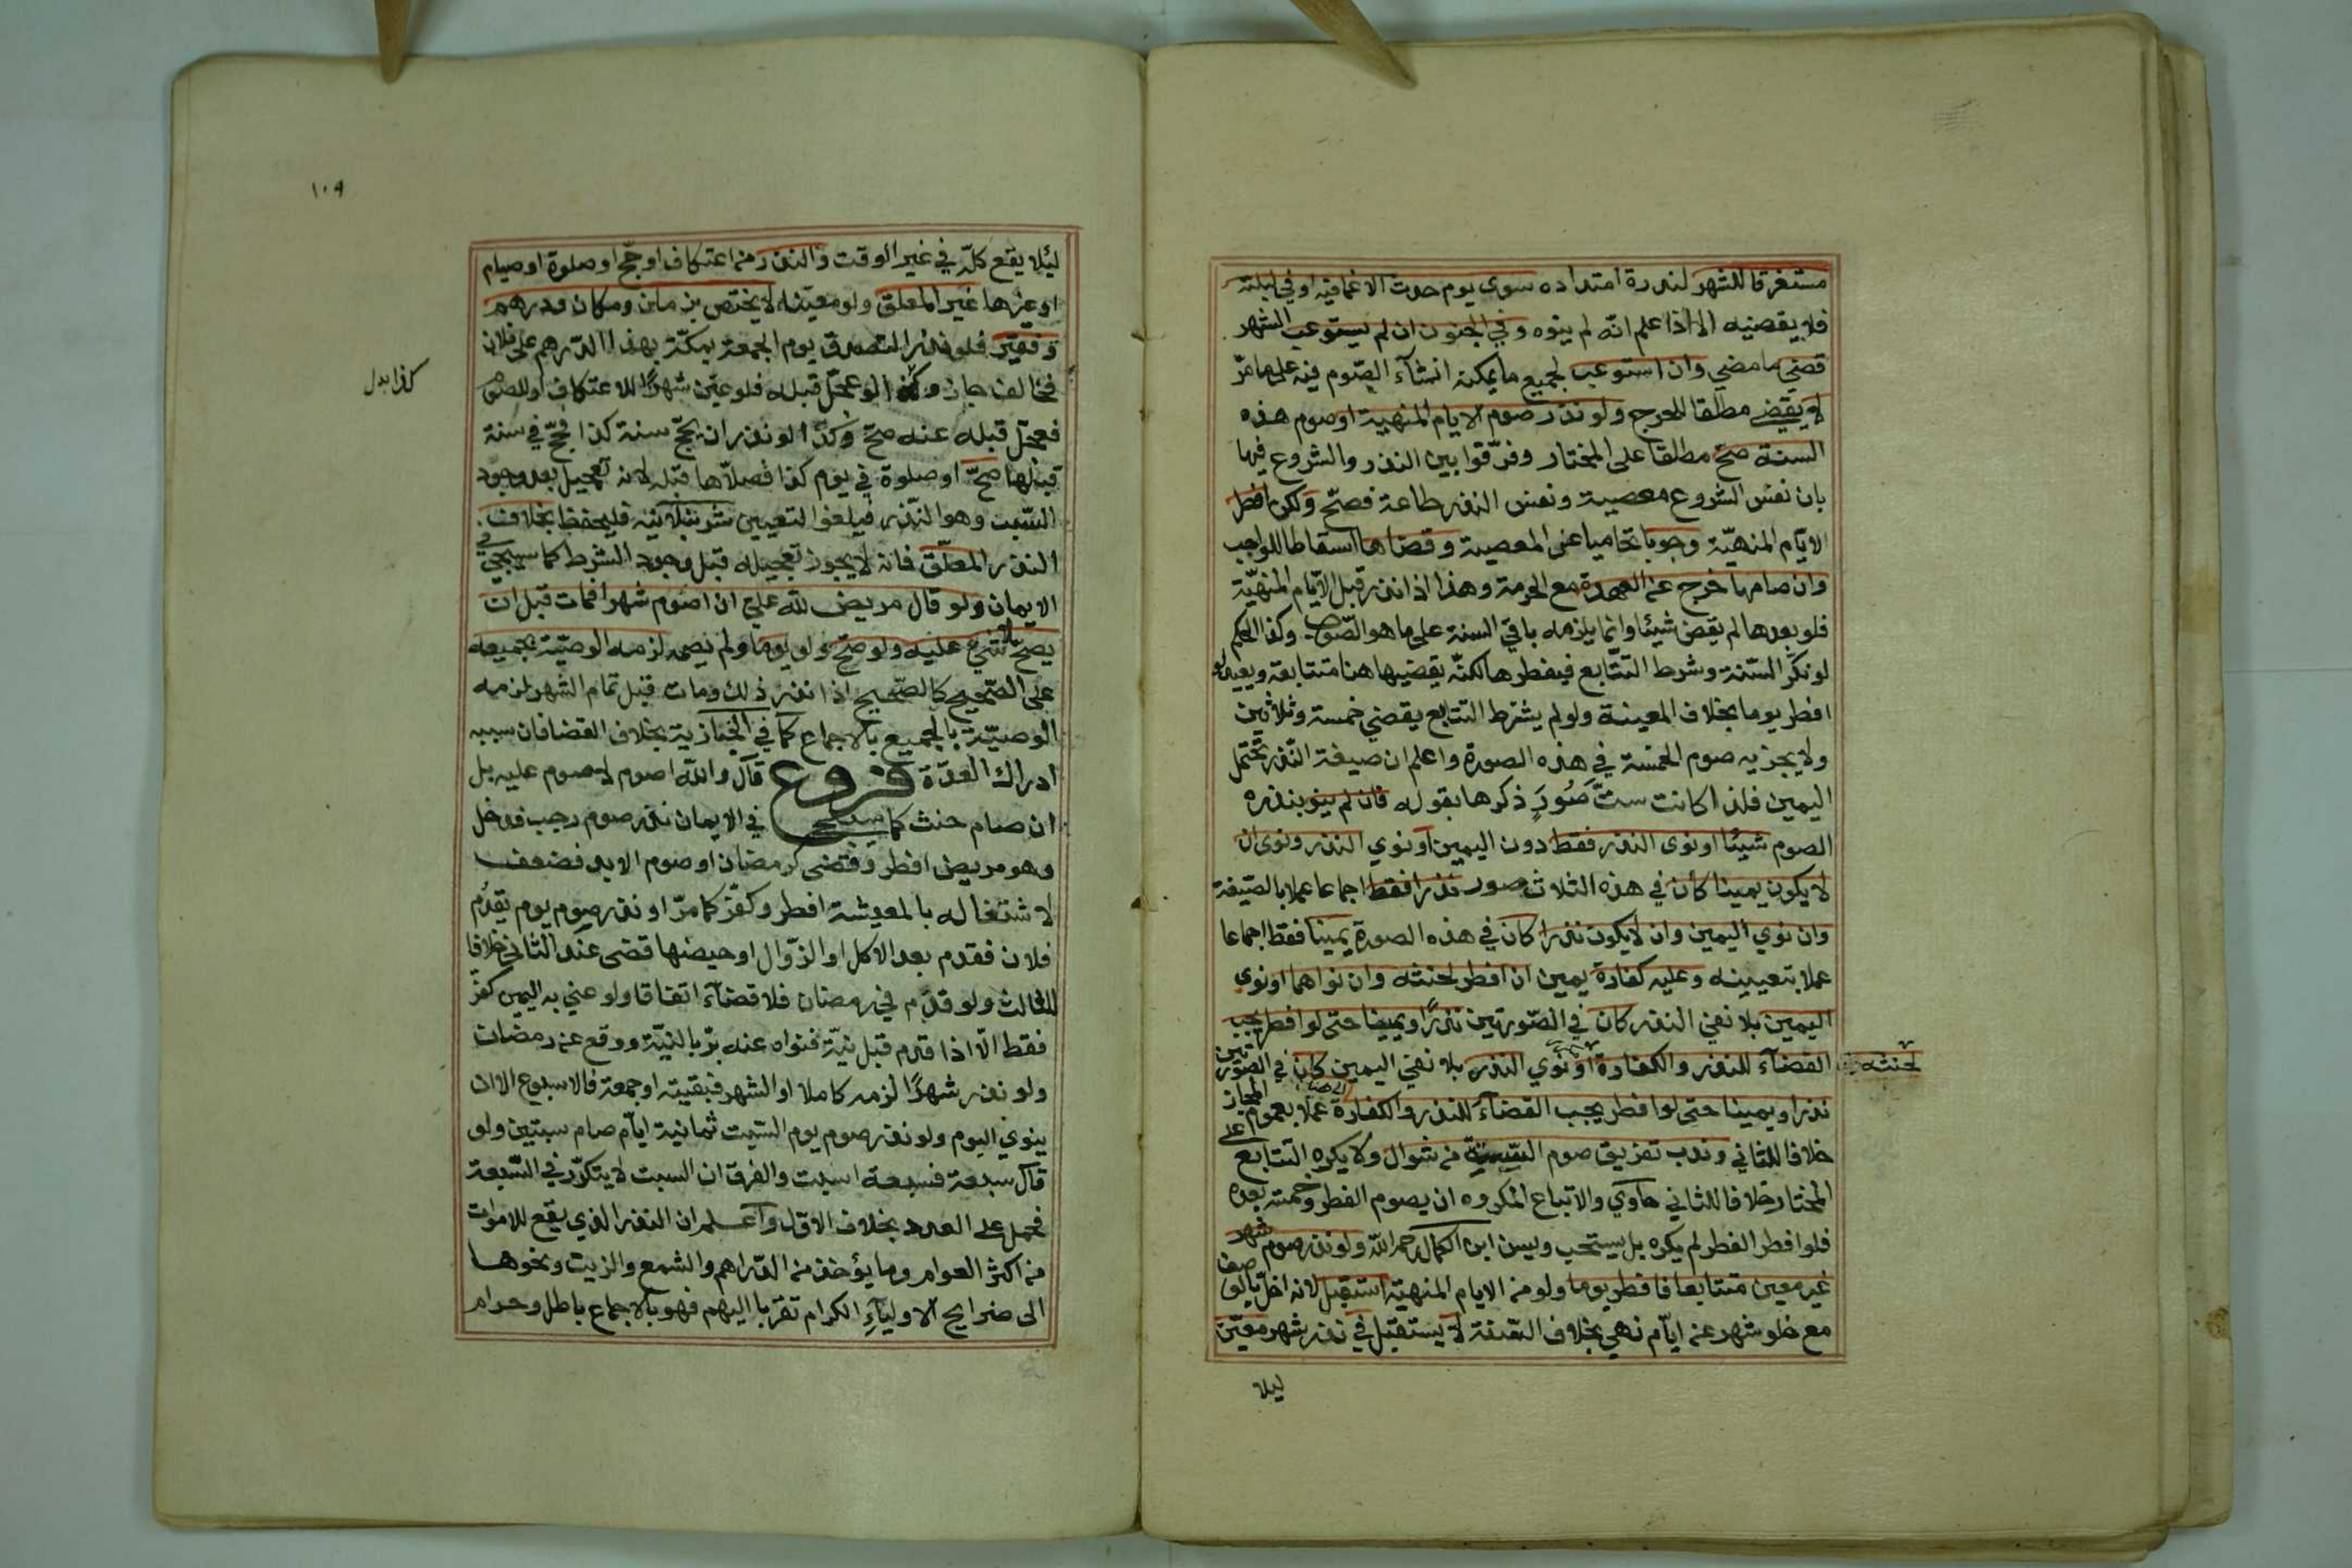 مستغرقا للشهر لندرة امتداده سوى يوم حدث الاغما فيه او في ليلته
فلا يقضيه الا اذا علم انه لم ينوه وفي الجنون ان لم يستوعب الشهر
قضى ما مضى وان استوعب لجميع ما يمكنه انشآء الصّوم فيه على ما مرّ
لا يقضي مطلقا للحرج ولو نذر صوم الايام المنهية او صوم هذه
السنة صحّ مطلقا على المختار وفرّقوا بين النذر والشروع فيها
بان نفس الشروع معصية ونفس النذر طاعة فصحّ ولكن افطر
الايّام المنهيّة وجوبا تحاميا عن المعصية وقضاها اسقاطا للواجب
وان صامها خرج عن العهدة مع الحرمة وهذا اذا نذر قبل الايّام المنهيّة
فلو بعدها لم يقض شيئا وانما يلزمه باقي السنة على ما هو الصّواب وكذا الحكم
لو نكّر السّنة وشرط التتابع فيفطرها لكنّه يقضيها هنا متتابعة ويعيد لو
افطر يوما بخلاف المعينة ولو لم يشترط التتابع يقضي خمسة وثلاثين
ولا يجزيه صوم الخمسة في هذه الصورة واعلم ان صيغة النّذر تحتمل
اليمين فلذا كانت ستّ صُورٍ ذكرها بقوله فان لم ينو بنذره
الصوم شيئا او نوى النذر فقط دون اليمين او نوي النذر ونوى ان
لا يكون يمينا كان في هذه الثلاث صور نذرا فقط اجماعا عملا بالصّيغة
وان نوي اليمين وان لا يكون نذرا كان في هذه الصورة يمينا فقط اجماعا
عملا بتعيينه وعليه كفارة يمين ان افطر لحنثه وان نواهما او نوى
اليمين بلا نفي النذر كان في الصّورتين نذرًا ويمينا حتى لو افطر يجب
القضآء للنذر والكفارة او نوي النذر بلا نفي اليمين كان في الصّورتين
لحنثه
نذرا ويمينا حتى لو افطر يجب القضآء للنذر والكفارة عملا بعموم المجاز
خلافا للثاني وندب تفريق صوم الستة من شوال ولا يكره التتابع على
المختار خلافا للثاني حاوي والاتباع المكروه ان يصوم الفطر وخمسة بعده
فلو افطر الفطر لم يكره بل يستحب ويسن ابن الكمال رحمه الله ولو نذر صوم شهر
غير معين متتابعا فافطر يوما ولو من الايام المنهية استقبل لانه اخلّ بالوصف
مع خلو شهر عن ايّام نهي بخلاف السّنة لا يستقبل في نذر شهر معيّن
ليلا
١٠٩
ليئلا يقع كلّه في غير الوقت والنذر من اعتكاف او حجّ او صلوة او صيام
او غيرها غير المعلق ولو معيّنه لا يختص بزمان ومكان ودرهم
وفقير فلو نذر التصدق يوم الجمعة بمكّة بهذا الدّرهم على فلان
فخالف جاز وكذا لو عجّل قبله فلو عيّن شهرًا للاعتكاف او للصوم
كذا بدل
فعجّل قبله عنه صحّ وكذا لو نذر ان يحجّ سنة كذا فحجّ في سنة
قبلها صحّ او صلوة في يوم كذا فصلّاها قبله لانه تعجيل بعد وجود
السّبب وهو النّذر فيلغوا لتعيين شرنبلالية فليحفظ بخلاف
النذر المعلّق فانه لا يجوز تعجيله قبل وجود الشرط كما سيجي في
الايمان ولو قال مريض للّه علي ان اصوم شهرا فمات قبل ان
يصحّ لا شئ عليه ولو صحّ ولو يوما ولم يصمه لزمه الوصيّة بجميعه
على الصّحيح كالصّحيح اذا نذر ذلك ومات قبل تمام الشهر لزمه
الوصيّة بالجميع بالاجماع كما في الخبازية بخلاف القضا فان سببه
ادراك العدّة فروع قال واللّه اصوم لا صوم عليه بل
ان صام حنث كما سيجي في الايمان نذر صوم رجب فدخل
وهو مريض افطر وقضى كرمضان او صوم الابد فضعف
لاشتغاله بالمعيشة افطر وكفّر كما مرّ او نذر صوم يوم يقدُم
فلان فقدم بعد الاكل او الزّوال او حيضها قضى عند الثاني خلافا
للثالث ولو قدم في رمضان فلا قضآء اتفاقا ولو عني به اليمين كفّر
فقط الّا اذا قدم قبل نيّة فنواه عنه برّ بالنيّة ووقع عن رمضان
ولو نذر شهرًا لزمه كاملا او الشهر فبقيته او جمعة فالاسبوع الا ان
ينوي اليوم ولو نذر صوم يوم السّبت ثمانية ايّام صام سبتين ولو
قال سبعة فسبعة اسبت والفرق ان السبت لا يتكرّر في السّبعة
فحمل على العدد بخلاف الاوّل واعلم ان النذر الذي يقع للاموات
من اكثر العوام وما يؤخذ من الدّراهم والشمع والزيت ونحوها
الى ضرايح الاوليآءِ الكرام تقرّبا اليهم فهو بالاجماع باطل وحرام